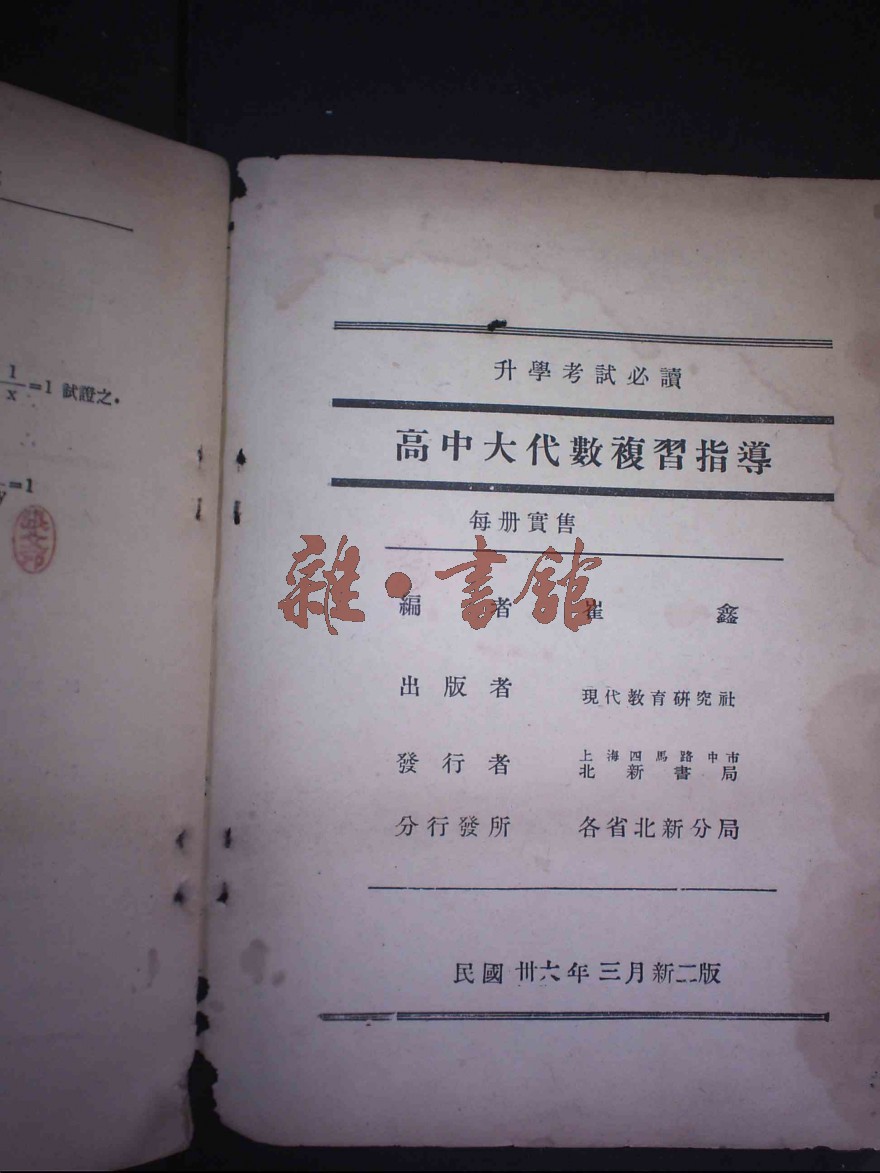 1/x=1 試證之.
=1
升學考試必讀
高中大代數複習指導
每册實售
雜·書館
編者 崔鑫
出版者 現代教育研究社
發行者 上海四馬路中市
北新書局
分行發所 各省北新分局
民國卅六年三月新二版